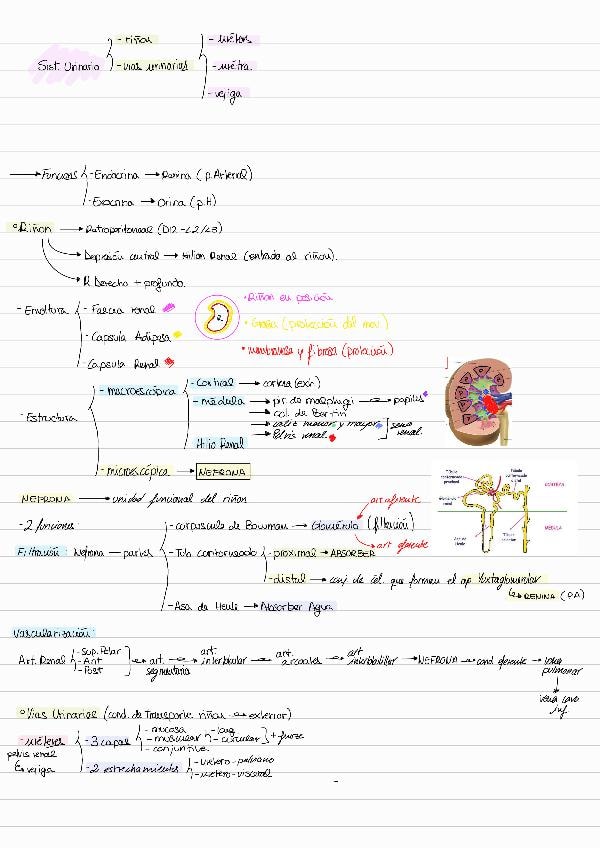 Sist. Urinario - riñón - uréters
- vías urinarias - uretra
- vejiga
→ Funciones - Endocrina → Renina (p. Arterial)
- Exocrina → Orina (pH)
° Riñón → Retroperitoneal (D12-L2/L3)
→ Depresión central → Hilion Renal (entrada al riñon).
→ R. Derecho + profundo.
- Envoltura - Fascia renal
- Capsula Adiposa
- Capsula Renal
• Riñón en posición
• Grasa (protección del mov.)
• membranosa y fibrosa (protección)
- Estructura - macroscópica - Cortical → corteza (ext)
- médula → pir. de malphigi → papilas
→ col. de Bertin
→ caliz menor y mayor
→ Pelvis renal. seno renal.
Hilio Renal
- microscópica → NEFRONA
NEFRONA → unidad funcional del riñón
- 2 funciones
Filtración: Nefrona - partes - corpúsculo de Bowman → Glomérulo (filtración)
art aferente
art eferente
- Tub. contorneado - proximal → ABSORBER
- distal → conj. de cel. que forman el ap. Yuxtaglomerular
→ RENINA (PA)
- Asa de Henle → Absorber Agua
Túbulo contorneado proximal
Túbulo contorneado distal
CORTEZA
MÉDULA
Asa de Henle
Vascularización:
Art. Renal - Sup. Polar
- Ant
- Post
→ art. segmentaria → art. interlobular → art. arcuales → art interlobulillar → NEFRONA → cond. eferente → vena
pulmonar
vena cava inf.
° Vías Urinarias (cond. de Transporte riñón → exterior)
- uréteres - 3 capas - mucosa
- muscular - long
- circular + fuerza
- conjuntiva
pelvis renal
vejiga
- 2 estrechamientos - uretero-pelviano
- uretero-visceral